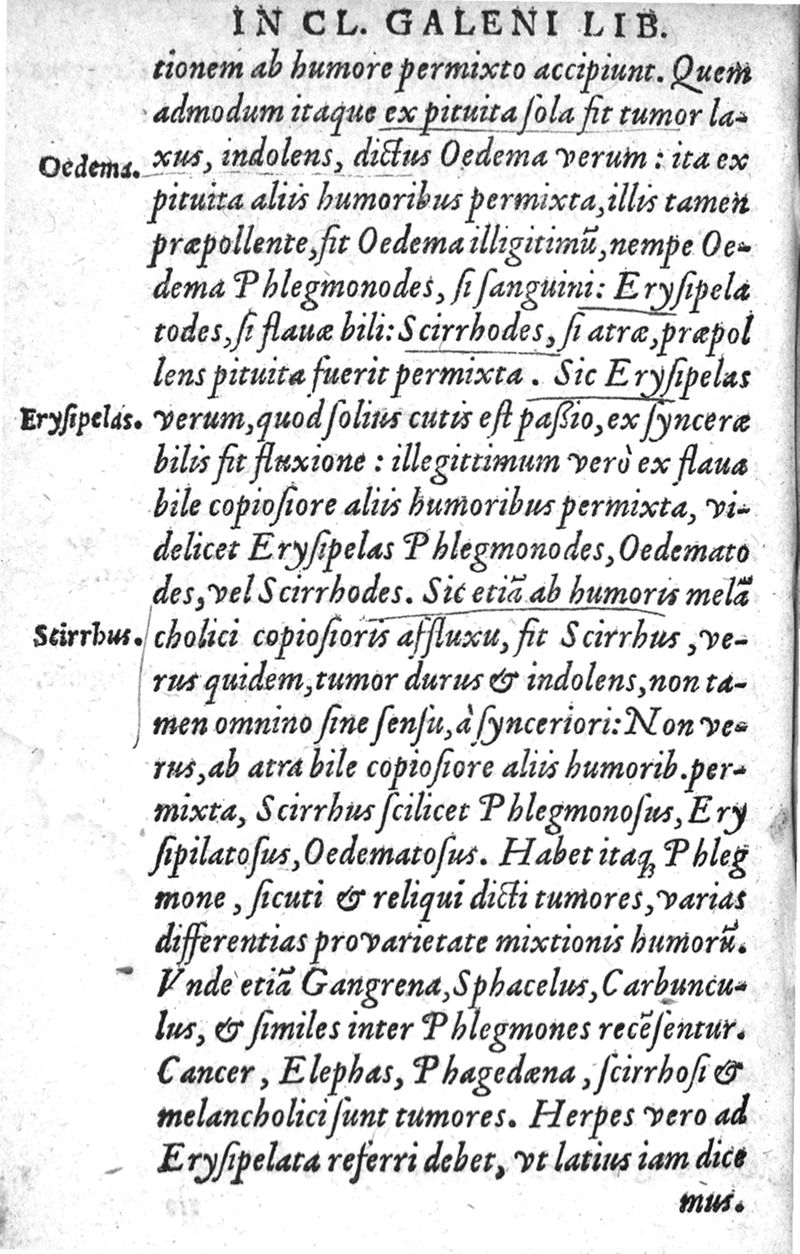 IN CL. GALENI LIB.
tionem ab humore permixto accipiunt. Quem
admodum itaque ex pituita ſola fit tumor la-
Oedema.
xus, indolens, dictus Oedema verum : ita ex
pituita aliis humoribus permixta, illis tamen
præpollente, fit Oedema illigitimũ, nempe Oe-
dema Phlegmonodes, ſi ſanguini: Eryſipela
todes, ſi flauæ bili: Scirrhodes, ſi atræ, præpol
lens pituita fuerit permixta . Sic Eryſipelas
Eryſipelas.
verum, quod ſolius cutis eſt paßio, ex ſynceræ
bilis fit fluxione : illegittimum verò ex flaua
bile copioſiore aliis humoribus permixta, vi-
delicet Eryſipelas Phlegmonodes, Oedemato
des, vel Scirrhodes. Sic etiã ab humoris melã
Scirrhus.
cholici copioſioris affluxu, fit Scirrhus , ve-
rus quidem, tumor durus & indolens, non ta-
men omnino ſine ſenſu, à ſynceriori: Non ve-
rus, ab atra bile copioſiore aliis humorib. per-
mixta, Scirrhus ſcilicet Phlegmonoſus, Ery
ſipilatoſus, Oedematoſus. Habet itaq; Phleg
mone , ſicuti & reliqui dicti tumores, varias
differentias pro varietate mixtionis humorũ.
Vnde etiã Gangrena, Sphacelus, Carbuncu-
lus, & ſimiles inter Phlegmones recẽſentur.
Cancer, Elephas, Phagedæna , ſcirrhoſi &
melancholici ſunt tumores. Herpes vero ad
Eryſipelata referri debet, vt latius iam dice
mus.